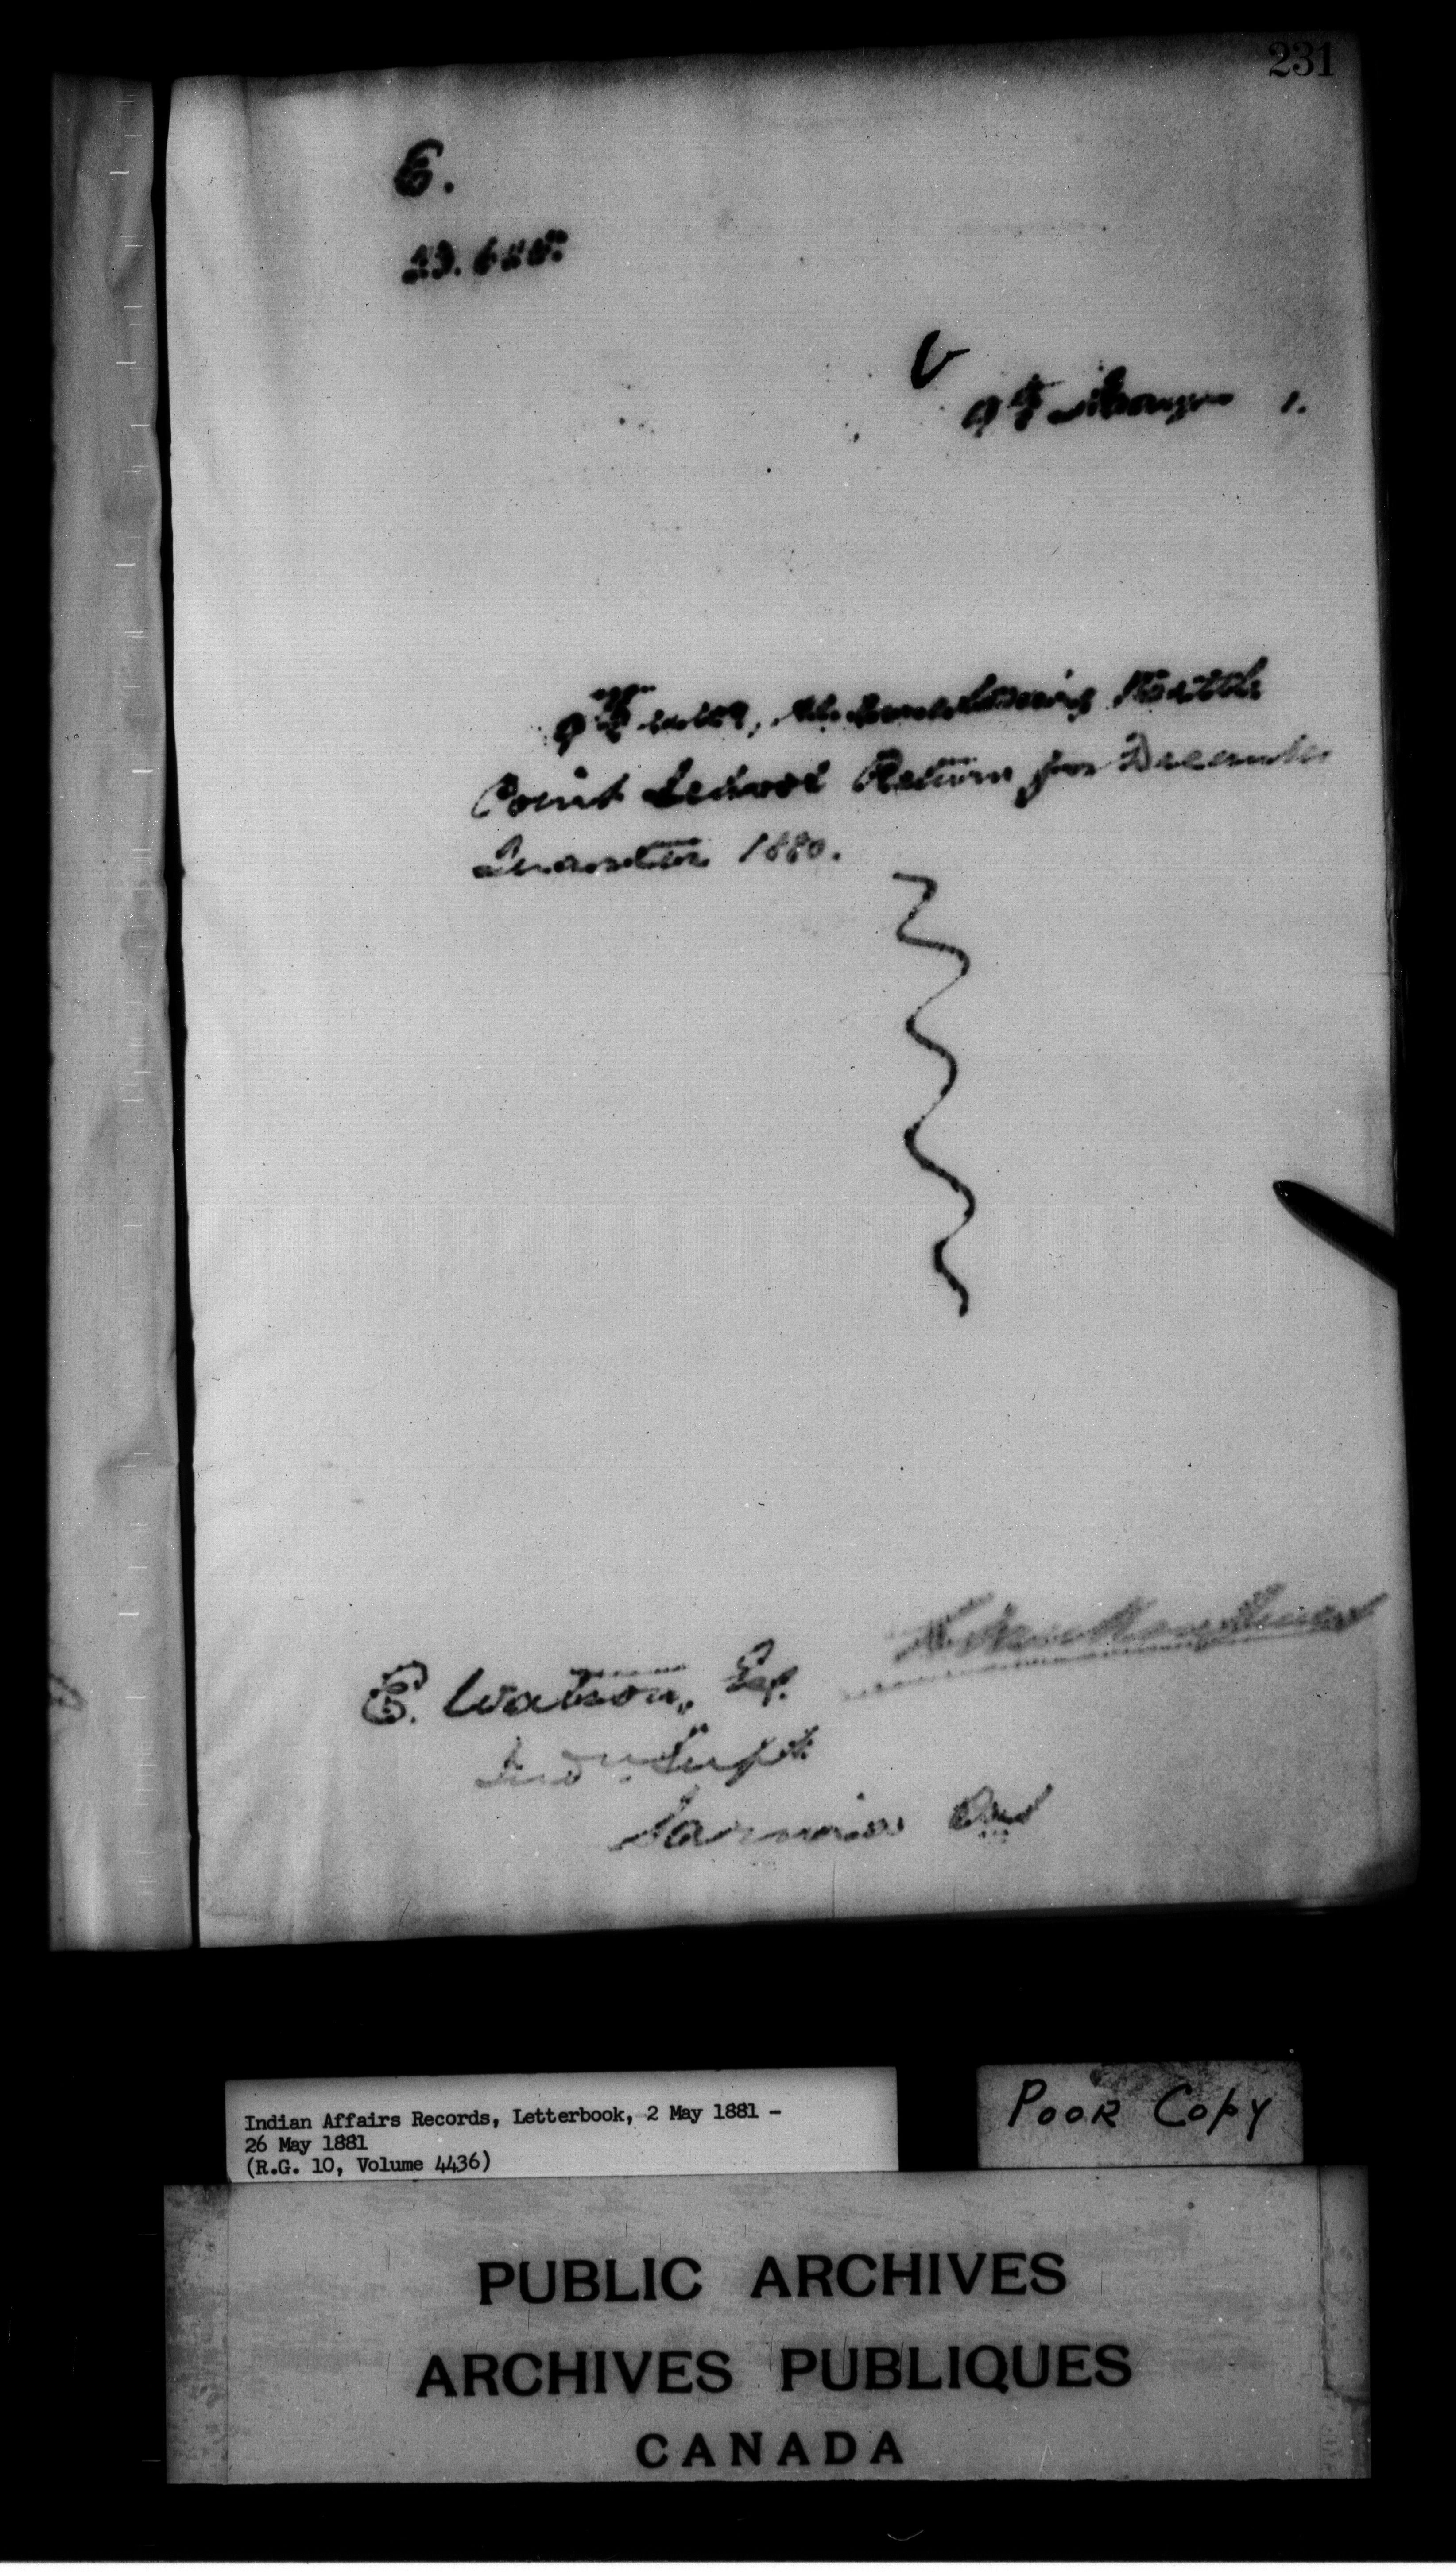 231
E.
9th May 1.
Kettle
Point School Return for December
Quarter 1880.
E. Watson, Esq.
Ind. Supt
Sarnia Ont
Indian Affairs Records, Letterbook, 2 May 1881 -
26 May 1881
(R.G. 10, Volume 4436)
POOR COPY
PUBLIC ARCHIVES
ARCHIVES PUBLIQUES
CANADA